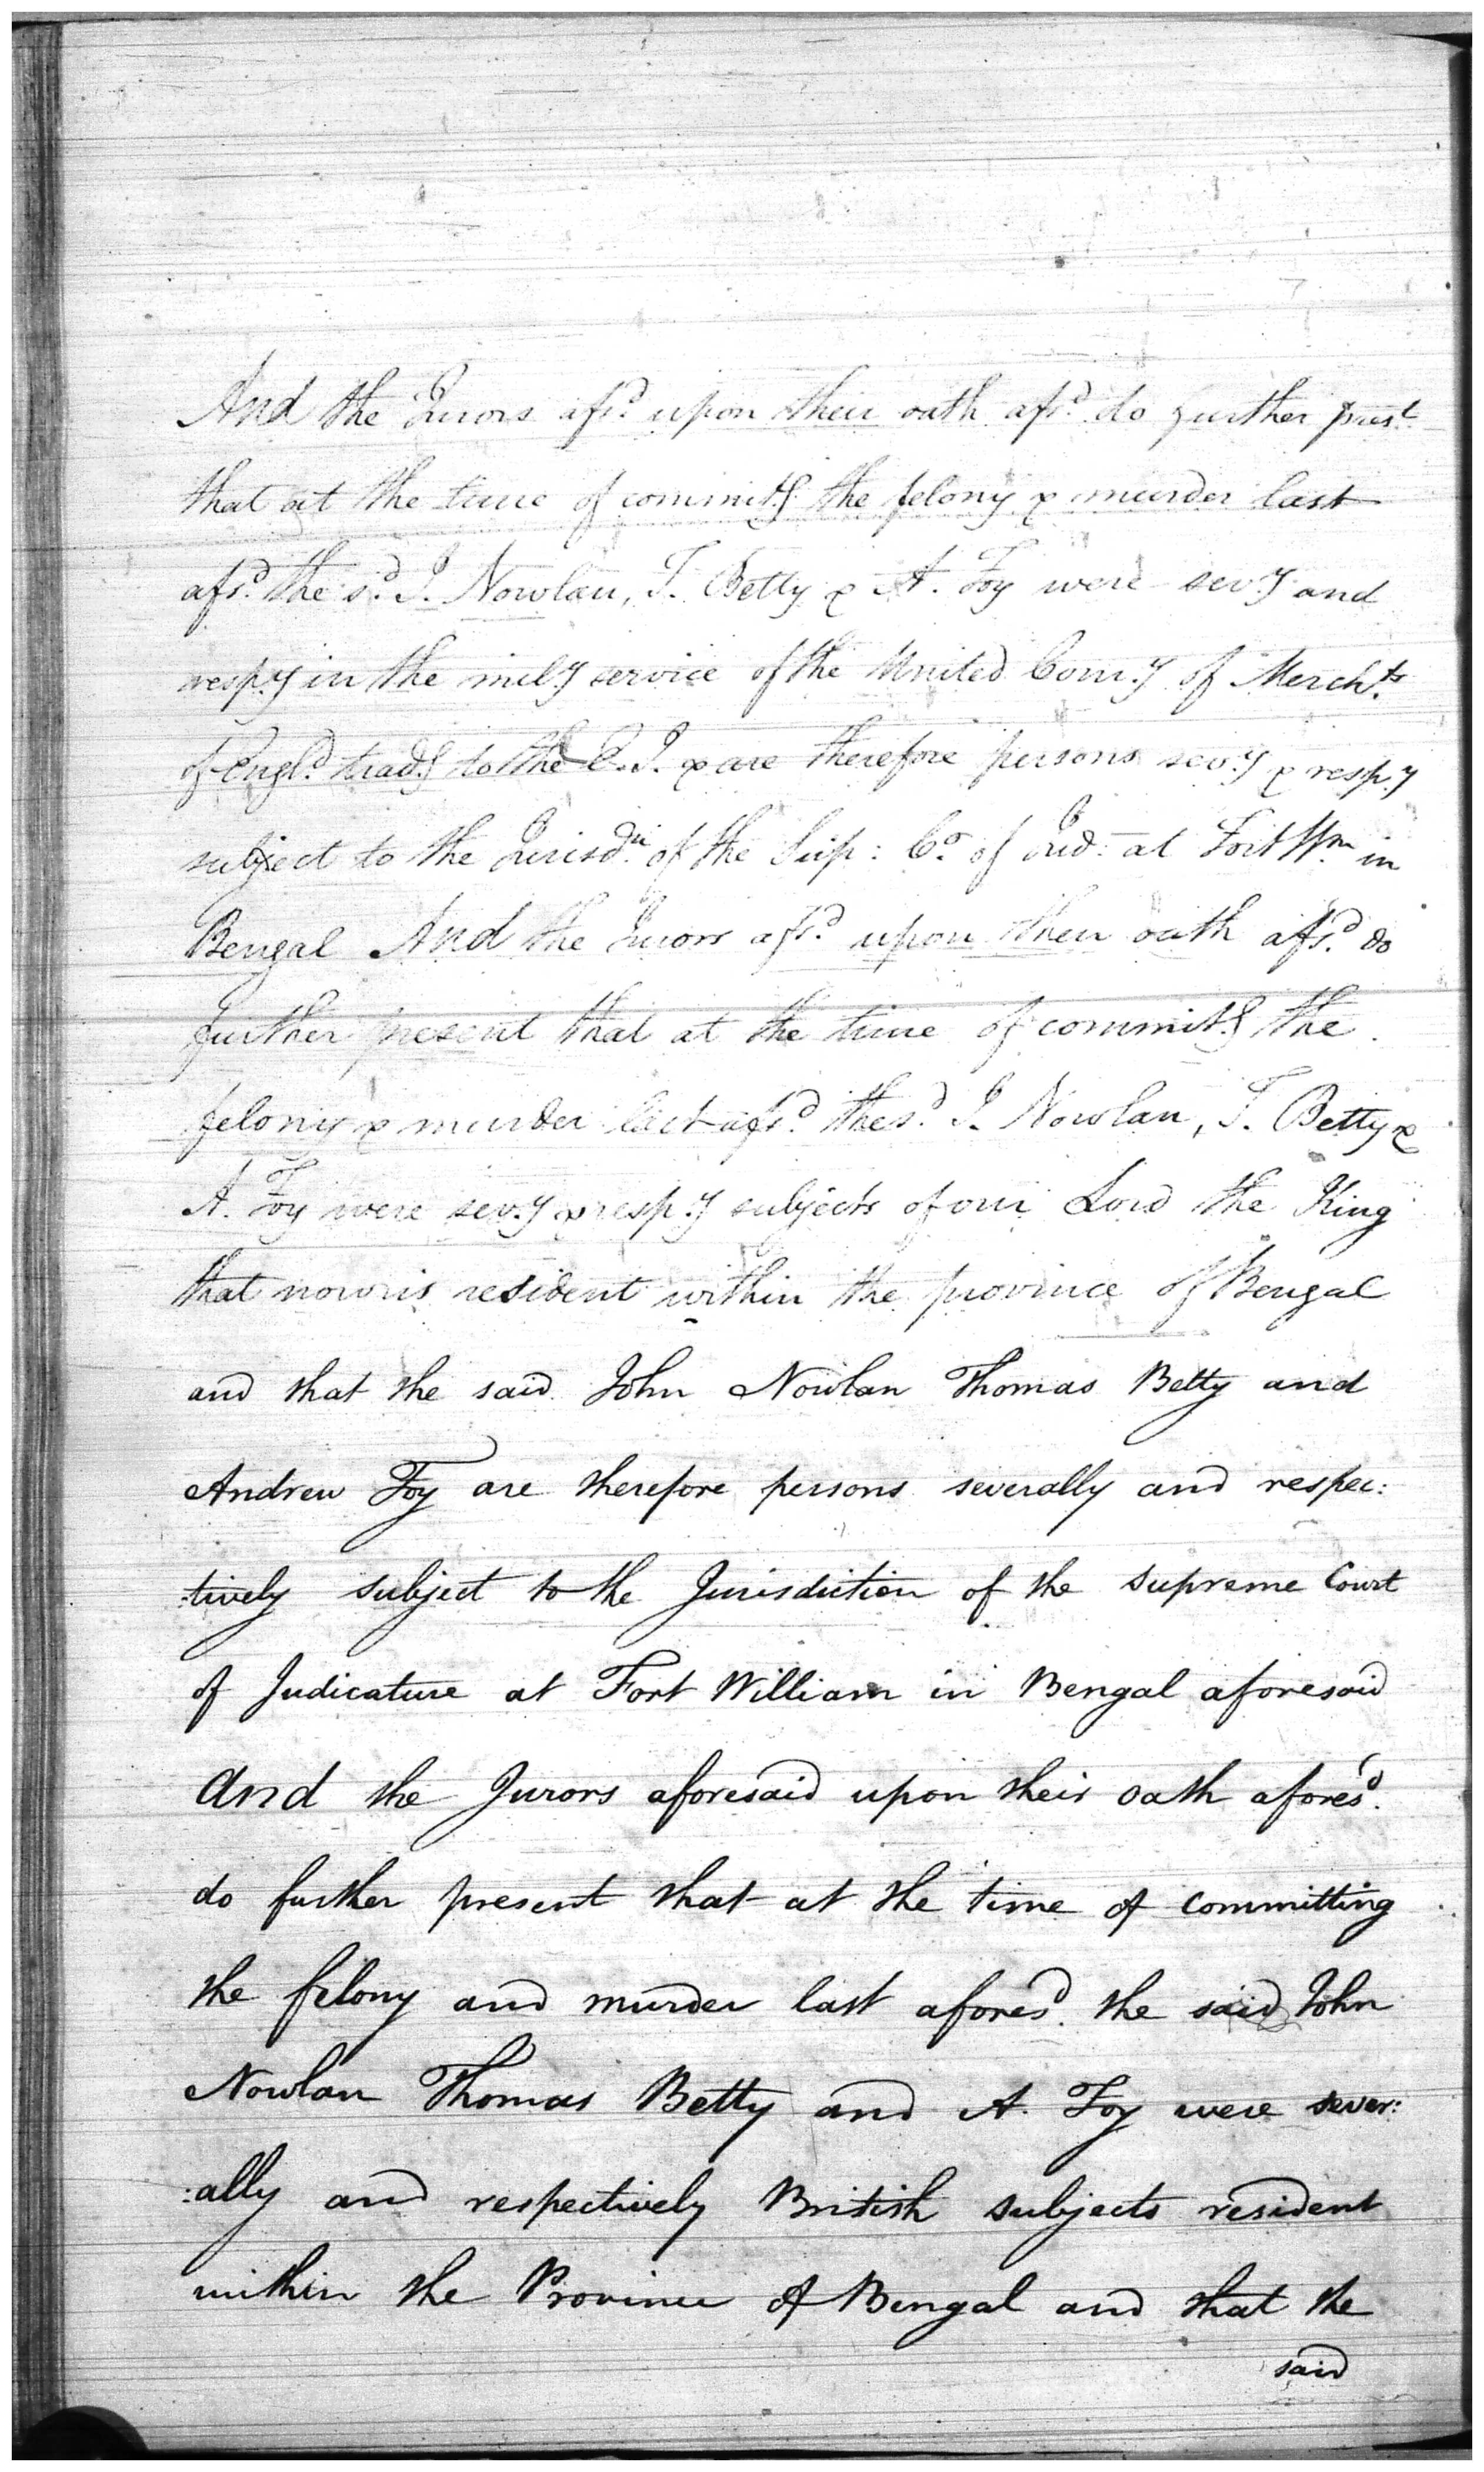 And the Jurors afsd. upon their oath afsd. do further prest.
that at the time of committg. the felony & murder last
afsd. the sd. J. Nowlan, T. Betty & A. Foy were sev.y and
resp.y in the mil.y service of the United Com.y of Merch.ts
of Engld. tradg. to the E.I. & are therefore persons sev.y & resp.y
subject to the Jurisdn. of the Sup: Co. of Jud: at Fort Wm. in
Bengal And the Jurors afsd. upon their oath afsd. do
further present that at the time of committg. the
felony & murder last afsd. the sd. J. Nowlan, T. Betty &
A. Foy were sev.y & resp.y subjects of our Lord the King
that now is resident within the province of Bengal
and that the said John Nowlan Thomas Betty and
Andrew Foy are therefore persons severally and respec:
:tively subject to the Jurisdiction of the Supreme Court
of Judicature at Fort William in Bengal aforesaid
And the Jurors aforesaid upon their oath aforesd.
do further present that at the time of committing
the felony and murder last aforesd. the said John
Nowlan Thomas Betty and A. Foy were sever:
:ally and respectively British subjects resident
within the Province of Bengal and that the
said